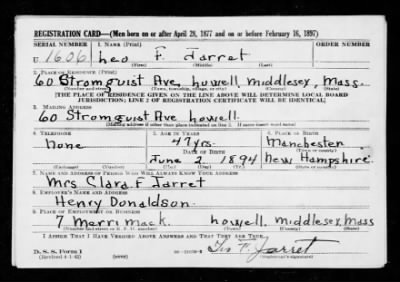 REGISTRATION CARD—(Men born on or after April 28, 1877 and on or before February 16, 1897)
SERIAL NUMBER 1. NAME (Print) ORDER NUMBER
U 1606 Leo F. Jarret
(First) (Middle) (Last)
2. PLACE OF RESIDENCE (Print)
60 Stromquist Ave, Lowell Middlesex, Mass.
(Number and street) (Town, township, village, or city) (County) (State)
[THE PLACE OF RESIDENCE GIVEN ON THE LINE ABOVE WILL DETERMINE LOCAL BOARD
JURISDICTION; LINE 2 OF REGISTRATION CERTIFICATE WILL BE IDENTICAL]
3. MAILING ADDRESS
60 Stromquist Ave Lowell
[Mailing address if other than place indicated on line 2. If same insert word same]
4. TELEPHONE 5. AGE IN YEARS 6. PLACE OF BIRTH
None 47 yrs. Manchester
DATE OF BIRTH (Town or county)
June 2 1894 New Hampshire
(Exchange) (Number) (Mo.) (Day) (Yr.) (State or country)
7. NAME AND ADDRESS OF PERSON WHO WILL ALWAYS KNOW YOUR ADDRESS
Mrs Clara F Jarret
8. EMPLOYER'S NAME AND ADDRESS
Henry Donaldson.
9. PLACE OF EMPLOYMENT OR BUSINESS
7 Merrimack. Lowell, Middlesex, Mass
(Number and street or R. F. D. number) (Town) (County) (State)
I AFFIRM THAT I HAVE VERIFIED ABOVE ANSWERS AND THAT THEY ARE TRUE.
D. S. S. Form 1
(Revised 4-1-42) (over) Leo F. Jarret
(Registrant's signature)